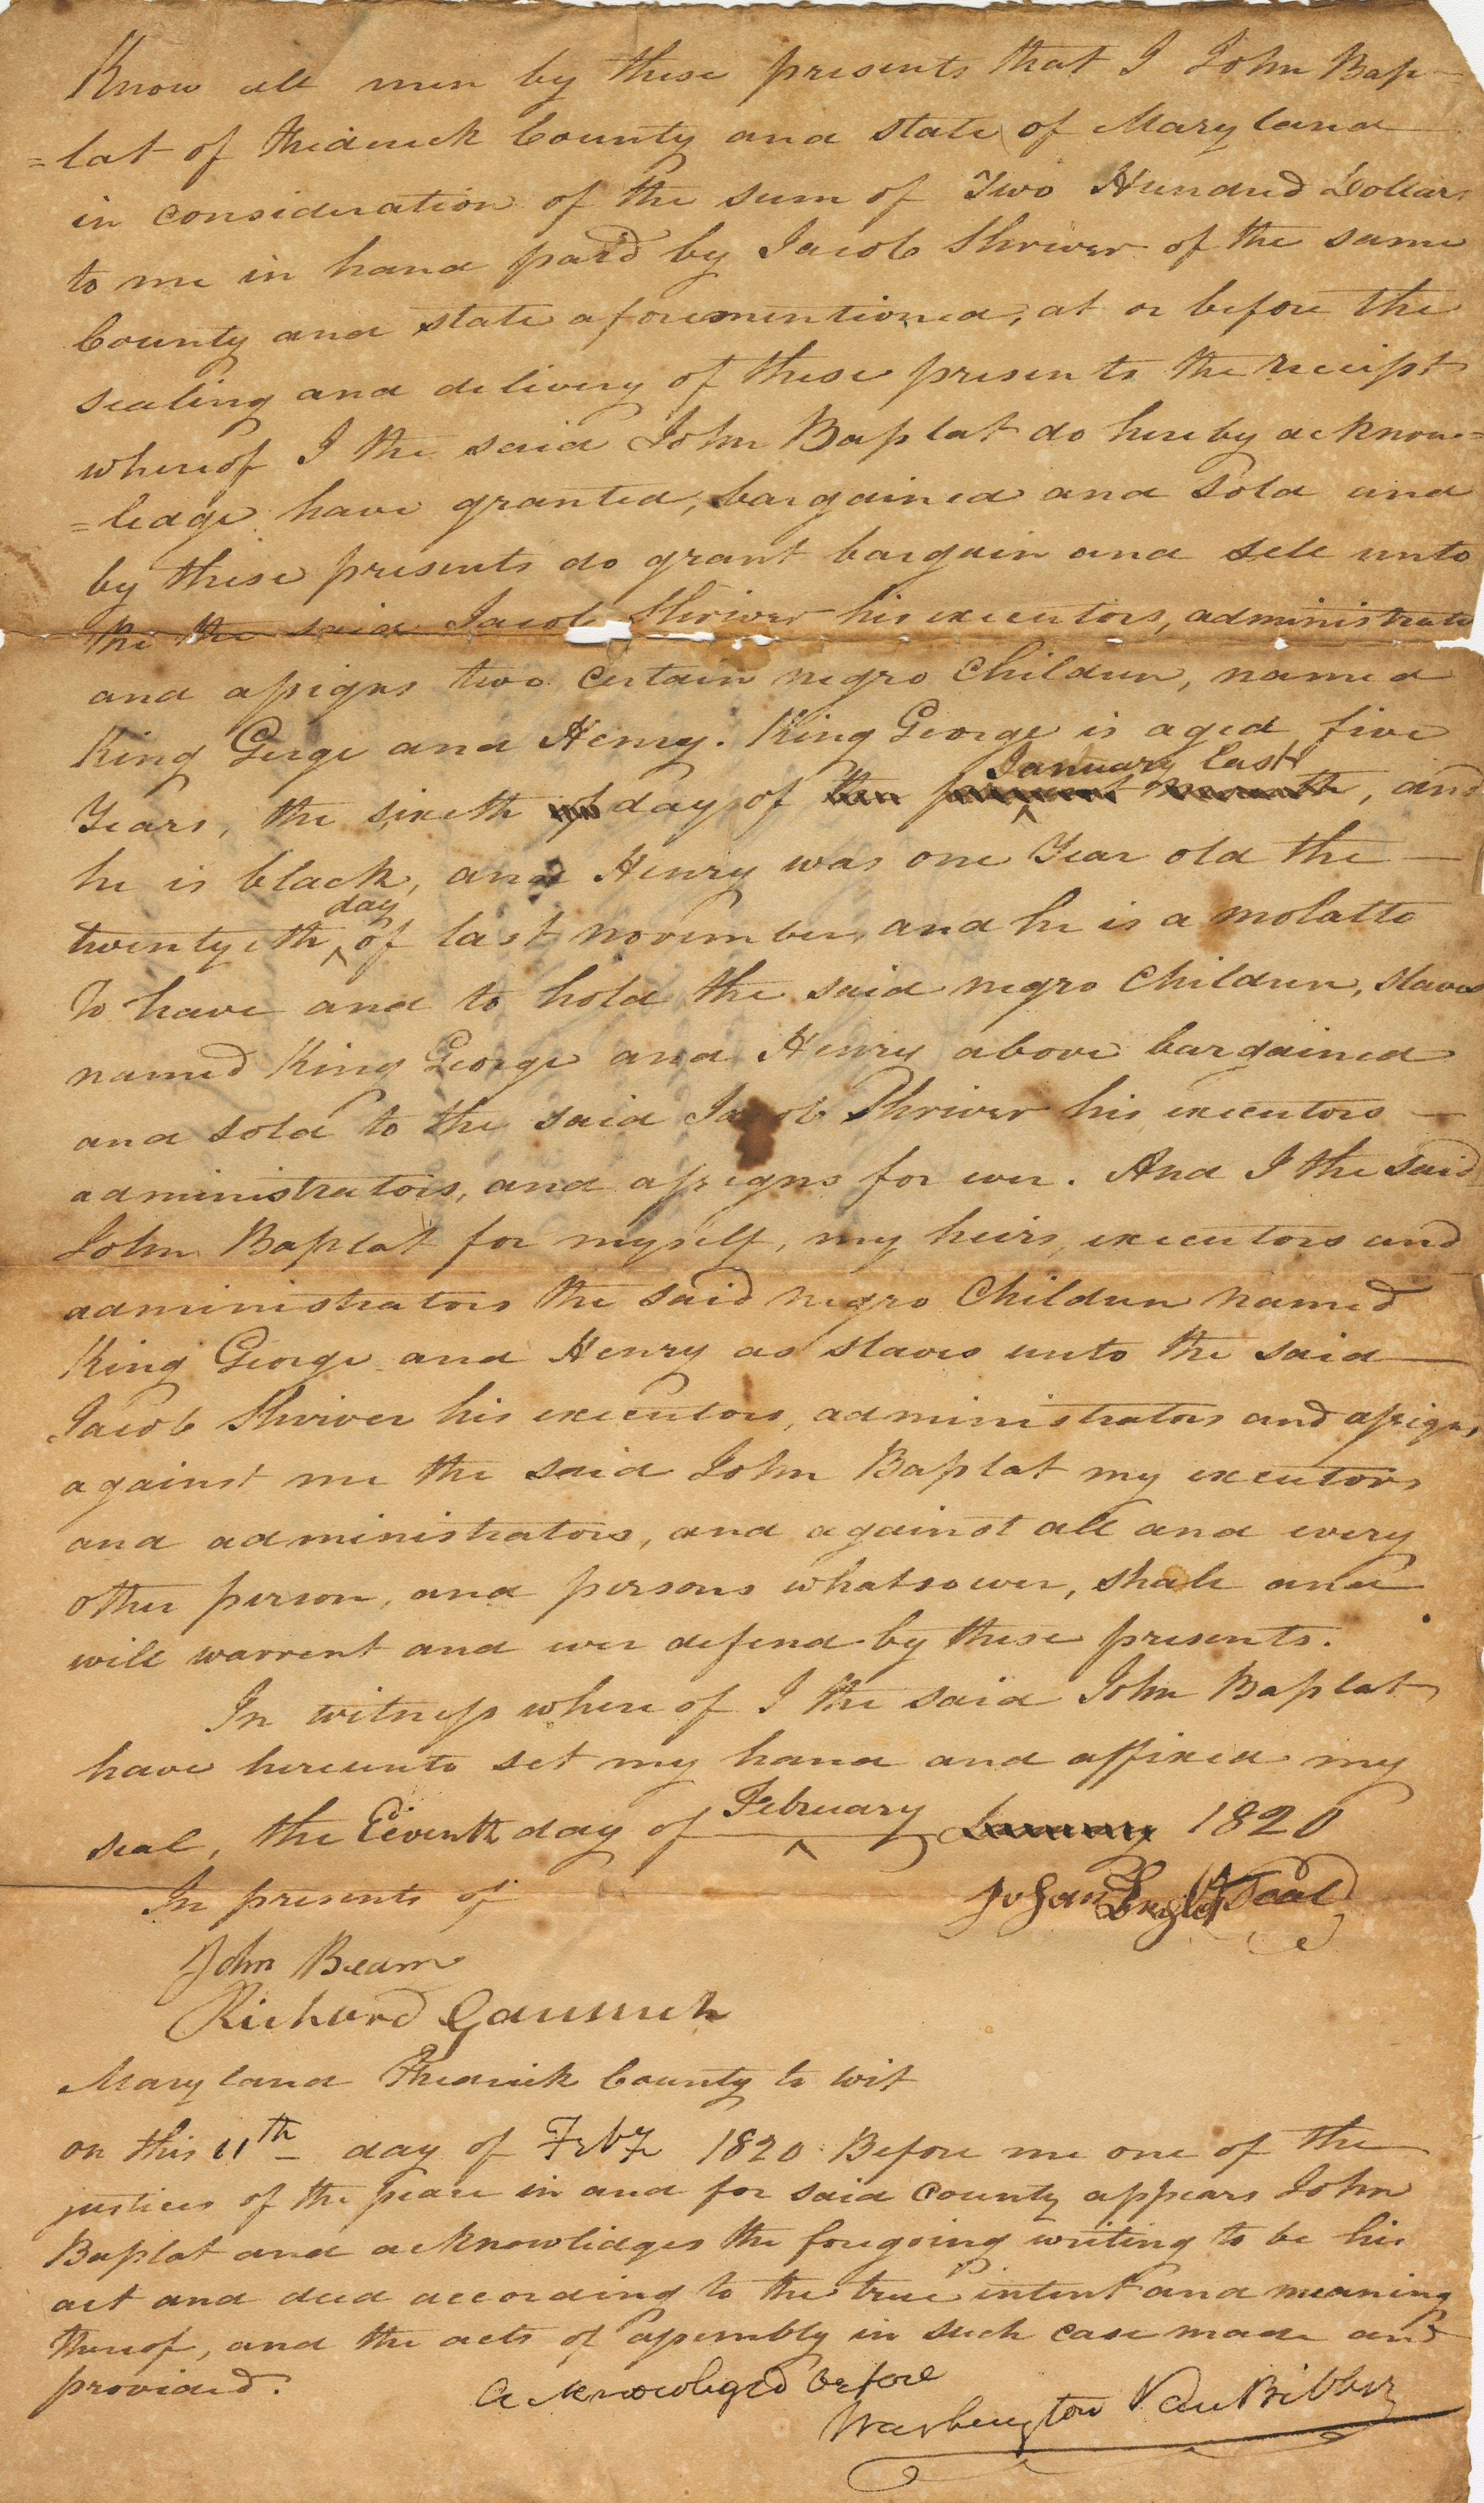 Know all men by these presents that I John Bap-
=lat of Frederick County and state of Maryland
in consideration of the sum of Two Hundred Dollars
to me in hand paid by Jacob Shriver of the same
County and state aforementioned, at or before the
sealing and delivery of these presents the receipt
whereof I the said John Baplat do hereby acknow=
=ledge have granted, bargained and sold and
by these presents do grant bargain and sell unto
the the said Jacob Shriver his executors, administrato
and assigns two certain negro children, named
King Gerge and Henry. King George is aged five
January last
Years, the sixth day of the present month, and
he is black, and Henry was one Year old the —
day
twentyeth of last november, and he is a molatto
To have and to hold the said negro children, slaves
named King George and Henry above bargained
and sold to the said Jacob Shriver his executors —
administrators, and assigns for ever. And I the said
John Baplat for myself, my heirs, executors and
administrators the said negro Children named
King George and Henry as slaves unto the said —
Jacob Shriver his executors, administrators and assigns,
against me the said John Baplat my executors
and administrators, and against all and every
other person, and persons whatsoever, shall and
will warrent and ever defend by these presents.
In witness where of I the said John Baplat
have hereunto set my hand and affixed my
February
seal, the Eleventh day of January 1820
In presents of
Johan Seal
John Beam
Richard
Maryland Frederick County to wit
on this 11th day of Feby 1820 Before me one of the
justices of the peace in and for said County appears John
Baplat and acknowlidges the foregoing writing to be his
act and deed according to the true intent and meaning
thereof, and the acts of assembly in such case made and
provided.
Acknowleged before
Washington Van Bibber